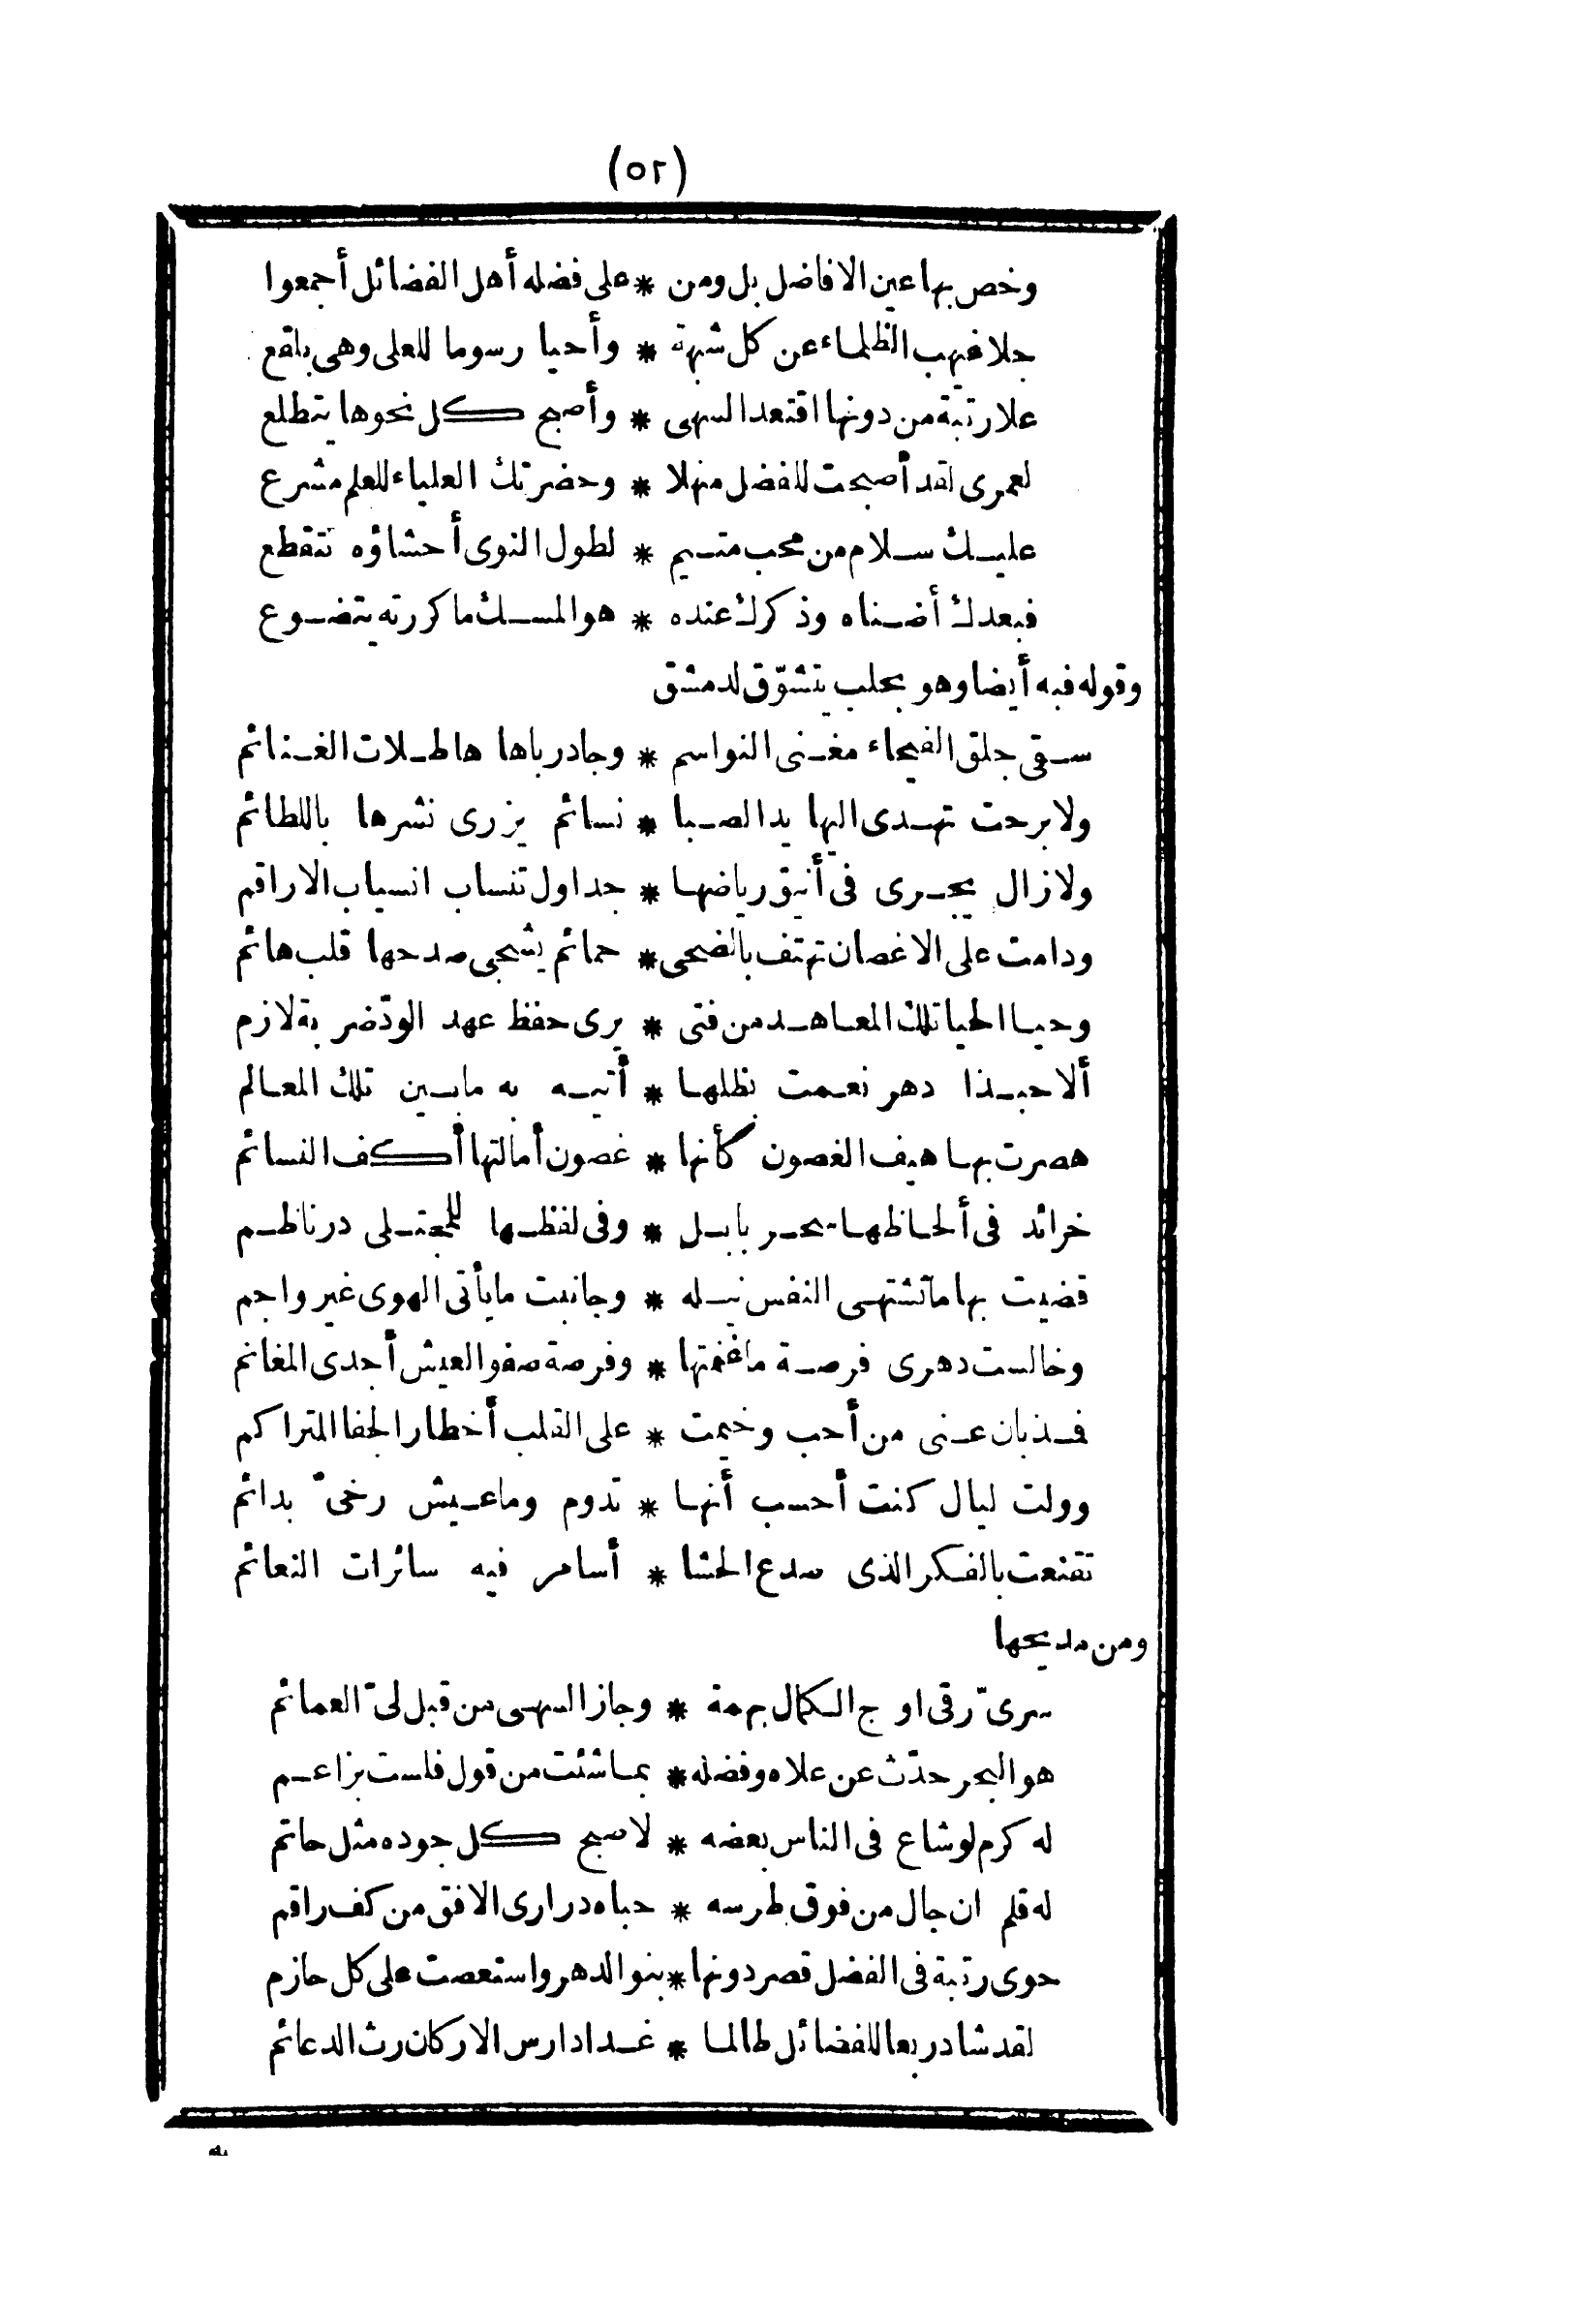 (٥٢)
وخص بها عين الافاضل بل ومن * على فضله أهل الفضائل أجمعوا
جلا غيهب الظلماء عن كل شبهة * وأحيا رسوما للعلى وهى بلقع
علا رتبة من دونها اقتعد السهى * وأصبح كل نحوها يتطلع
لعمرى لقد أصبحت للفضل منهلا * وحضرتك العلياء للعلم مشرع
عليك سلام من محب متيم * لطول النوى أحشاؤه تتقطع
فبعدك أضناه وذكرك عنده * هو المسك ما كررته يتضوع
وقوله فيه أيضا وهو بحلب يتشوّق لدمشق
سقى جلق الفيحاء مغنى النواسم * وجاد رباها هاطلات الغنائم
ولا برحت تهدى اليها يد الصبا * نسائم يزرى نشرها باللطائم
ولا زال يجرى فى أنيق رياضها * جداول تنساب انسياب الاراقم
ودامت على الاغصان تهتف بالضحى * حمائم يشجى صدحها قلب هائم
وحيا الحيا تلك المعاهد من فتى * يرى حفظ عهد الودّ ضربة لازم
ألا حبذا دهر نعمت بظلها * أتيه به مابين تلك المعالم
هصرت بها هيف الغصون كأنها * غصون أمالتها أكف النسائم
خرائد فى ألحاظها سحر بابل * وفى لفظها للمجتلى در ناظم
قضيت بها ما تشتهى النفس نيله * وجانبت ما يأتى الهوى غير واجم
وخالست دهرى فرصة ما غنمتها * وفرصة صفو العيش أجدى المغانم
فذ بان عنى من أحب وخيمت * على القلب أخطار الجفا المتراكم
وولت ليال كنت أحسب أنها * تدوم وما عيش رخىّ بدائم
تقنعت بالفكر الذى صدع الحشا * أسامر فيه سائرات النعائم
ومن مديحها
سرىّ رقى اوج الكمال برمة * وجاز السهى من قبل لىّ العمائم
هو البحر حدّث عن علاه وفضله * بما شئت من قول فلست بزاعم
له كرم لو شاع فى الناس بعضه * لاصبح كل جوده مثل حاتم
له قلم ان جال من فوق طرسه * حباه درارى الافق من كف راقم
حوى رتبة فى الفضل قصر دونها * بنو الدهر واستعصت على كل حازم
لقد شاد ربعا للفضائل طالما * غدا دارس الاركان رث الدعائم